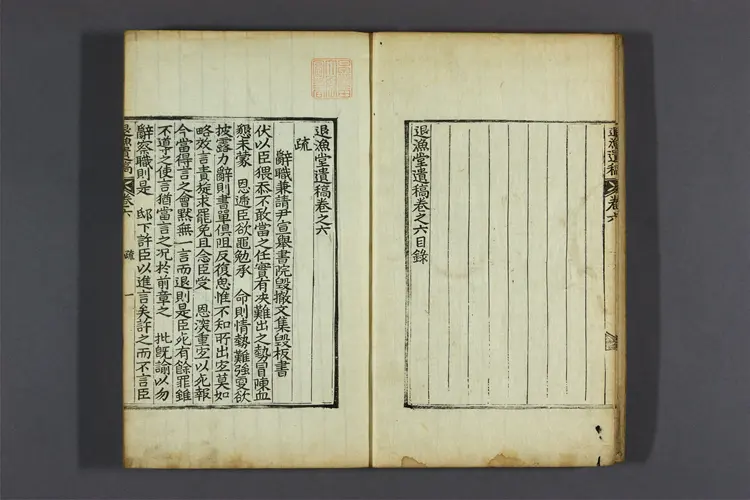 退漁堂遺稿 卷六
退漁堂遺稿卷之六目錄
退漁堂遺稿卷之六
疏
辭職兼請尹宣擧書院毁撤文集毁板書
伏以臣猥忝不敢當之任實有决難出之勢冒陳血
懇未蒙 恩遞臣欲黽勉承 命則情勢難強更欲
披露力辭則書單俱阻反復思惟不知所出定莫如
略效言責旋求罷免且念臣受 恩深重宜以死報
今當得言之會默無一言而退則是臣死有餘罪雖
不導之使言猶當言之况於前章之 批旣諭以勿
辭察職則是 邸下許臣以進言矣許之而不言臣
退漁遺稿 卷六 疏 一